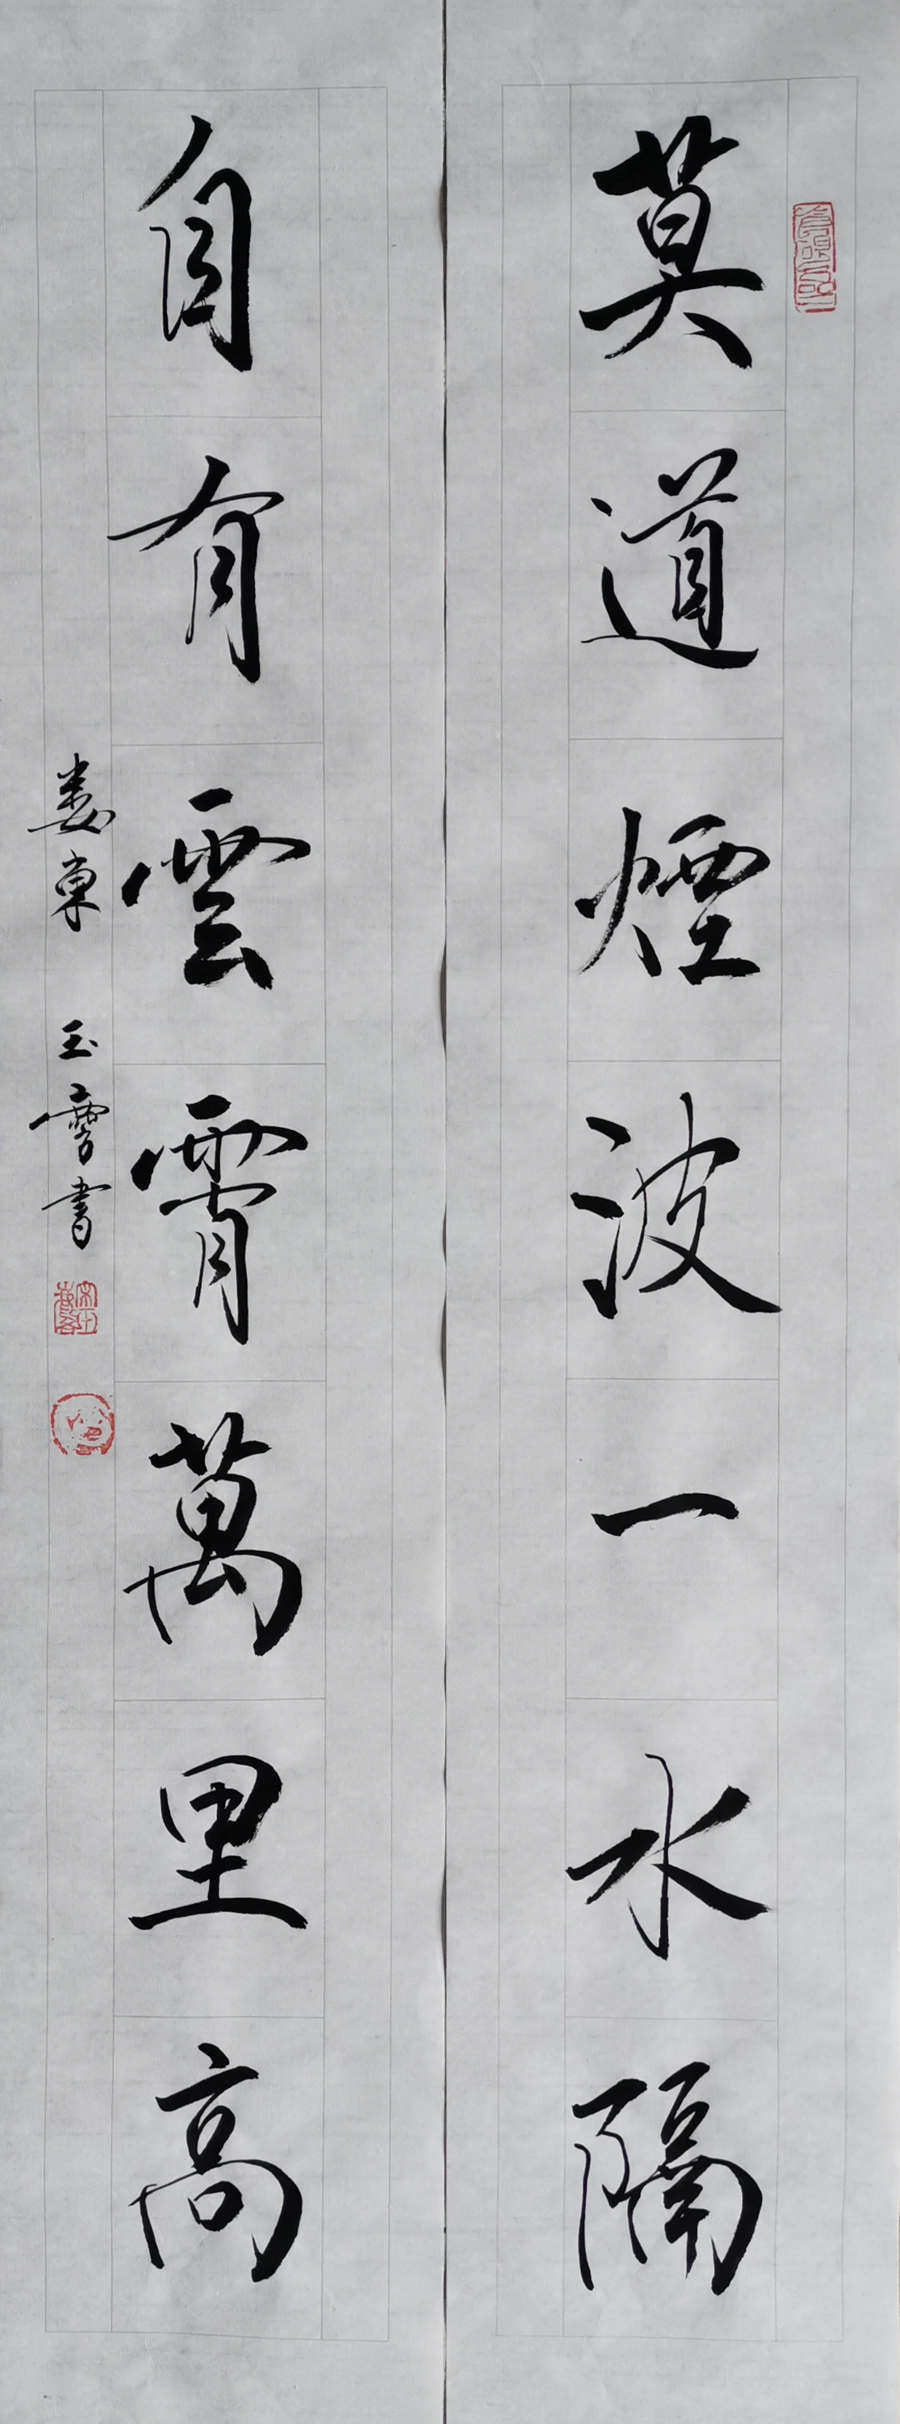 莫道煙波一水隔
自有雲霄萬里高
婁東 玉霽書